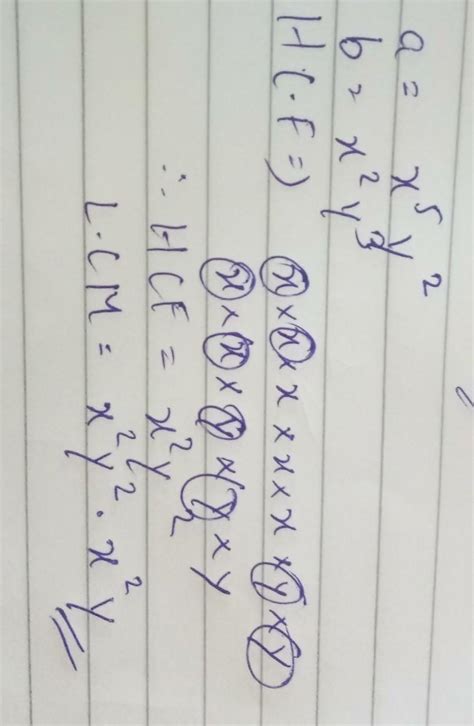 a = x⁵y²
b = x²y³
H C.F =) x × x × x × x × x × y × y
x × x × y × y × y
∴ HCF = x²y²
L.CM = x²y² · x²y